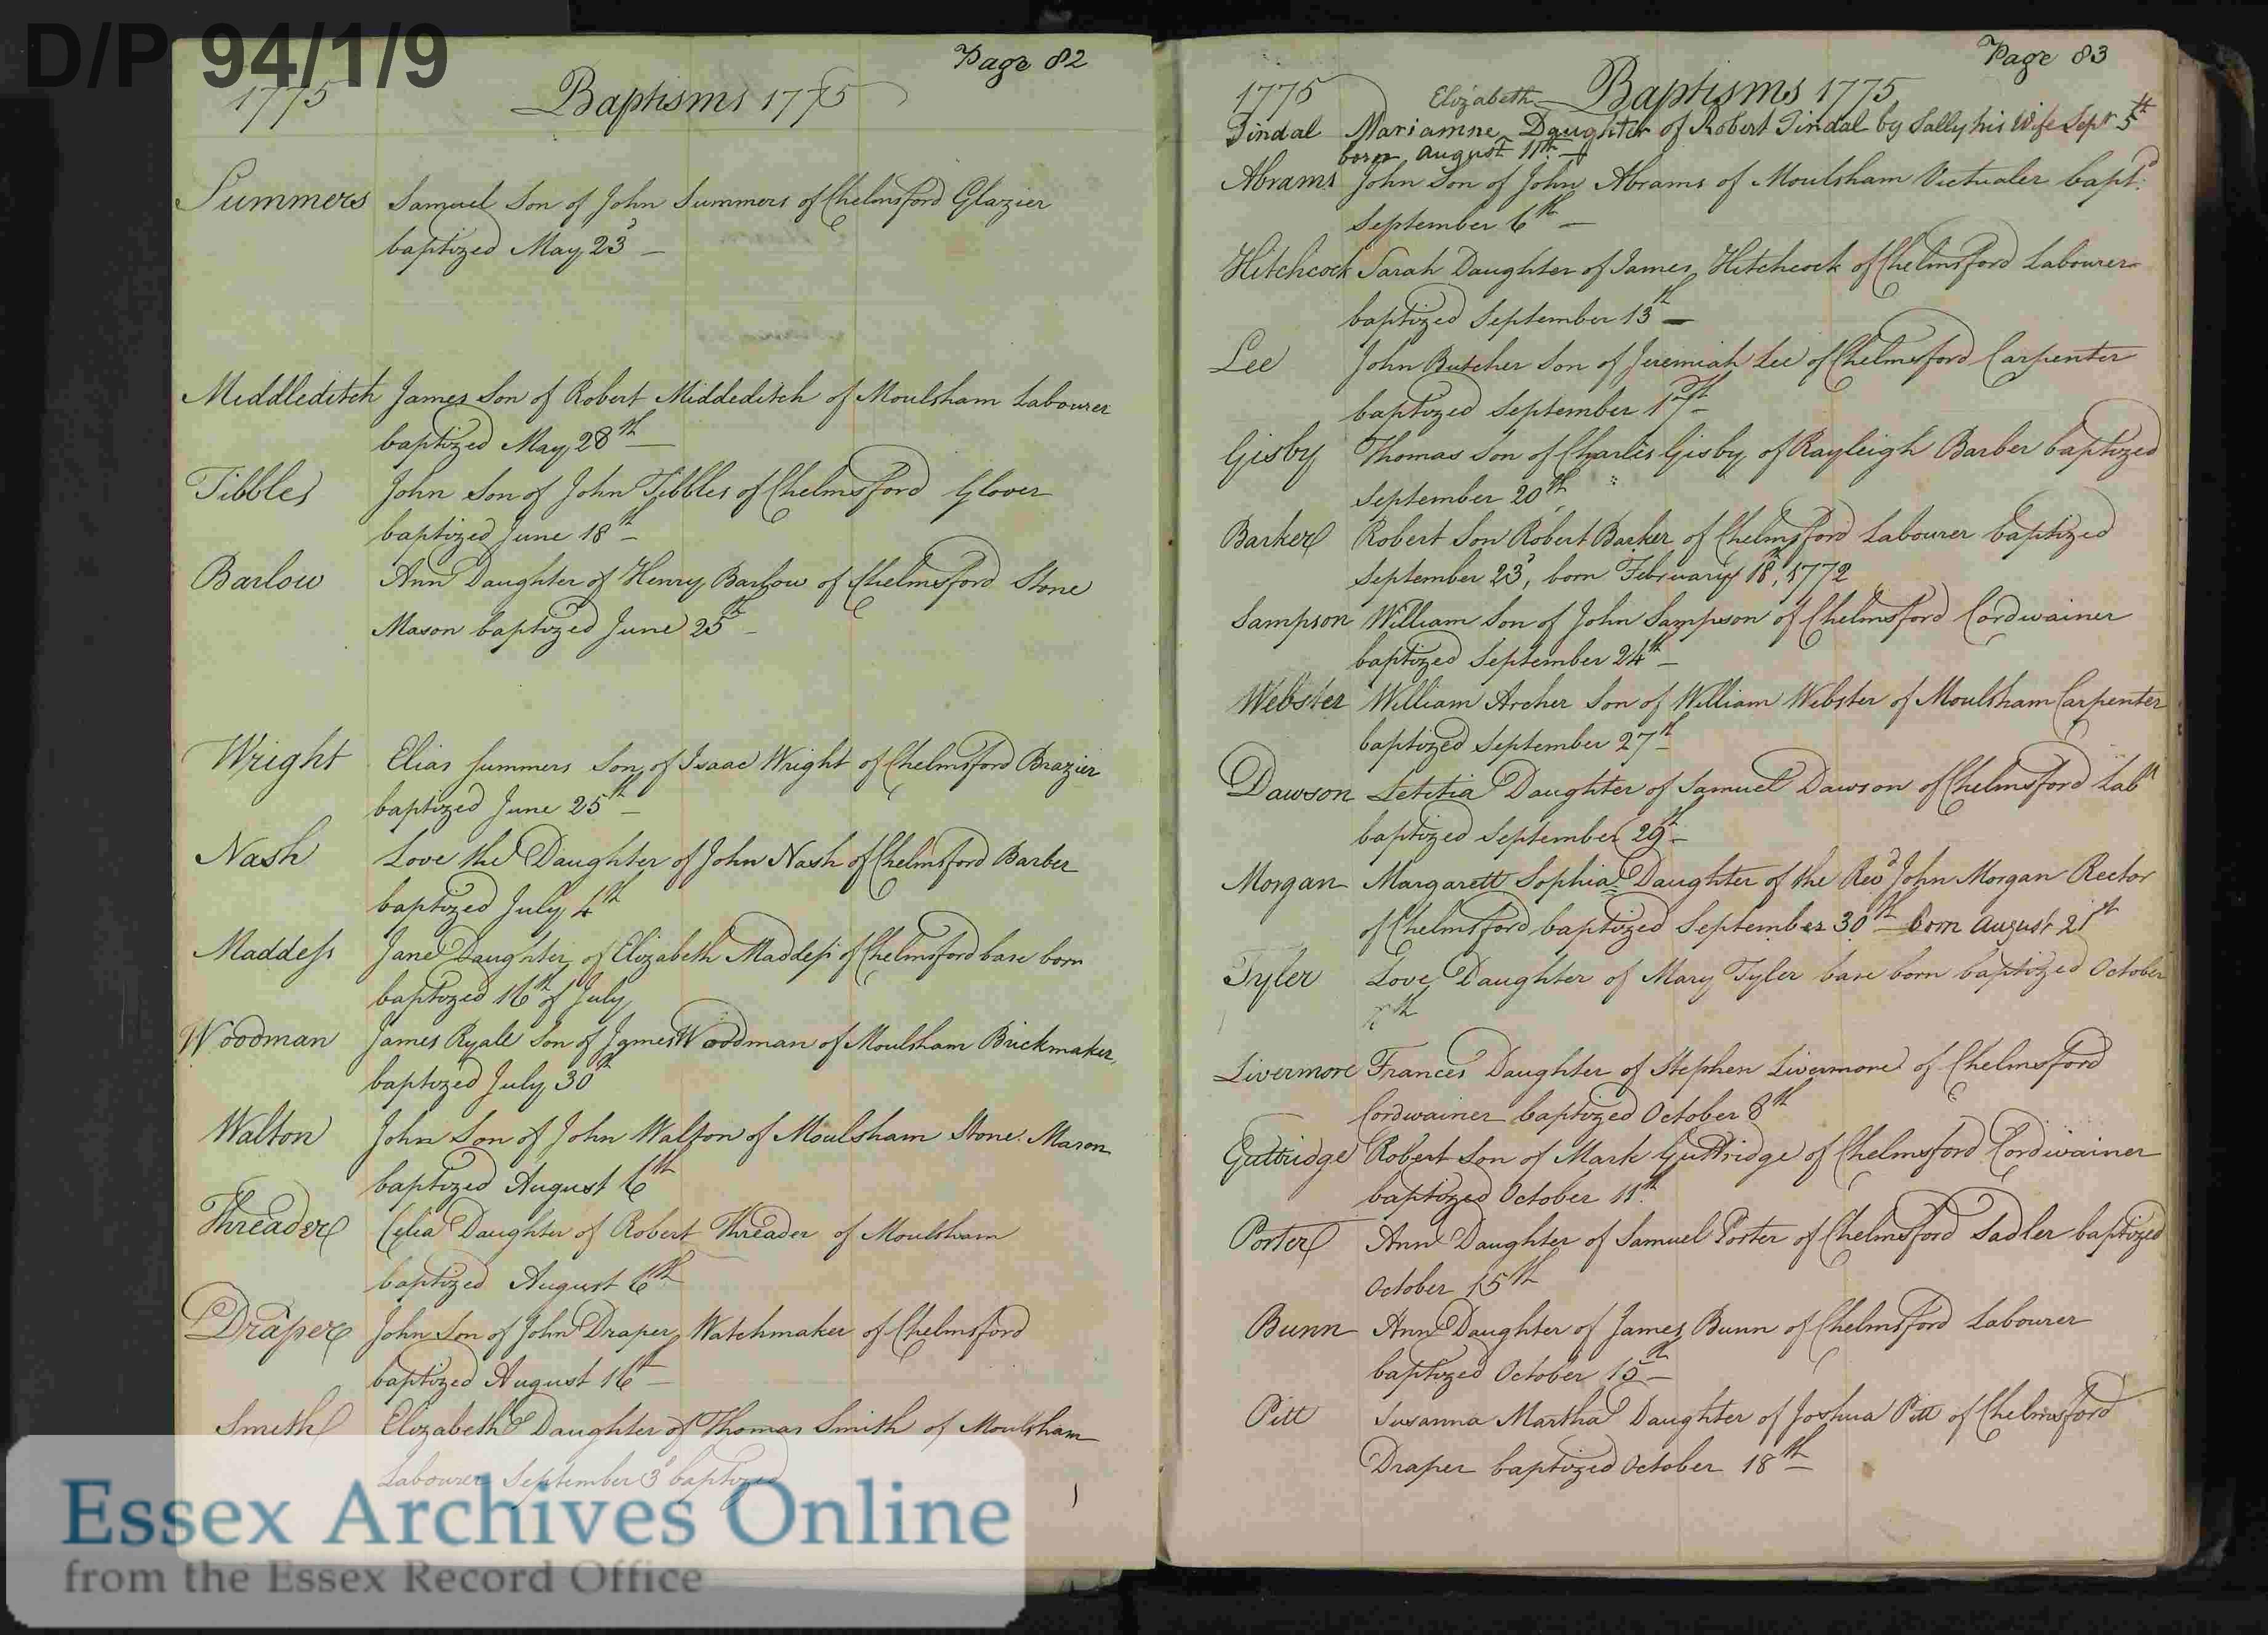 D/P 94/1/9
Page 82
1775 Baptisms 1775
Summers Samuel Son of John Summers of Chelmsford Glazier
baptized May 23d
Middleditch James Son of Robert Middeditch of Moulsham Labourer
baptized May 28th
Tibbles John Son of John Tibbles of Chelmsford Glover
baptized June 18th
Barlow Ann Daughter of Henry Barlow of Chelmsford Stone
Mason baptized June 25th
Wright Elias Summers Son of Isaac Wright of Chelmsford Brazier
baptized June 25th
Nash Love the Daughter of John Nash of Chelmsford Barber
baptized July 4th
Maddess Jane Daughter of Elizabeth Maddess of Chelmsford base born
baptized 16th of July
Woodman James Ryall Son of James Woodman of Moulsham Brickmaker
baptized July 30th
Walton John Son of John Walton of Moulsham Stone Mason
baptized August 6th
Threader Celia Daughter of Robert Threader of Moulsham
baptized August 6th
Draper John Son of John Draper Watchmaker of Chelmsford
baptized August 16th
Smith Elizabeth Daughter of Thomas Smith of Moulsham
Labourer September 3d baptized
Page 83
1775 Baptisms 1775
Elizabeth
Tindal Mariamne Daughter of Robert Tindal by Sally his Wife Sepr 5th
born August 11th
Abrams John Son of John Abrams of Moulsham Victualer bapt.d
September 6th
Hitchcock Sarah Daughter of James Hitchcock of Chelmsford Labourer
baptized September 13th
Lee John Butcher Son of Jeremiah Lee of Chelmsford Carpenter
baptized September 17th
Gisby Thomas Son of Charles Gisby of Rayleigh Barber baptized
September 20th
Barker Robert Son Robert Barker of Chelmsford Labourer baptized
September 23d, born February 18th, 1772
Sampson William Son of John Sampson of Chelmsford Cordwainer
baptized September 24th
Webster William Archer Son of William Webster of Moulsham Carpenter
baptized September 27th
Dawson Letitia Daughter of Samuel Dawson of Chelmsford Labr
baptized September 29th
Morgan Margarett Sophia Daughter of the Revd John Morgan Rector
of Chelmsford baptized September 30th born August 21st
Tyler Love Daughter of Mary Tyler base born baptized October
Livermore Frances Daughter of Stephen Livermore of Chelmsford
Cordwainer baptized October 8th
Guttridge Robert Son of Mark Guttridge of Chelmsford Cordwainer
baptized October 11th
Porter Ann Daughter of Samuel Porter of Chelmsford Sadler baptized
October 15th
Bunn Ann Daughter of James Bunn of Chelmsford Labourer
baptized October 15th
Pitt Susanna Martha Daughter of Joshua Pitt of Chelmsford
Draper baptized October 18th
Essex Archives Online
from the Essex Record Office